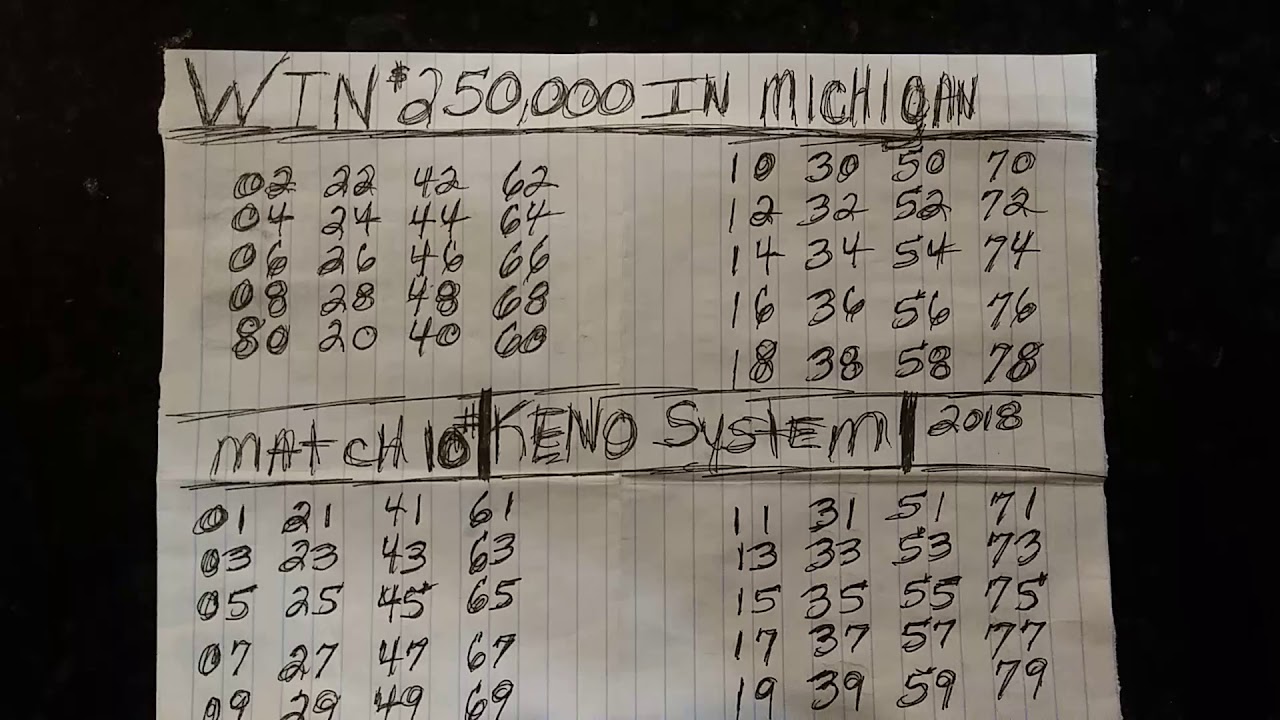 WIN $250,000 IN MICHIGAN
02 22 42 62
04 24 44 64
06 26 46 66
08 28 48 68
80 20 40 60
10 30 50 70
12 32 52 72
14 34 54 74
16 36 56 76
18 38 58 78
MAtCH 10# KENO SyStEm 2018
01 21 41 61
03 23 43 63
05 25 45 65
07 27 47 67
09 29 49 69
11 31 51 71
13 33 53 73
15 35 55 75
17 37 57 77
19 39 59 79